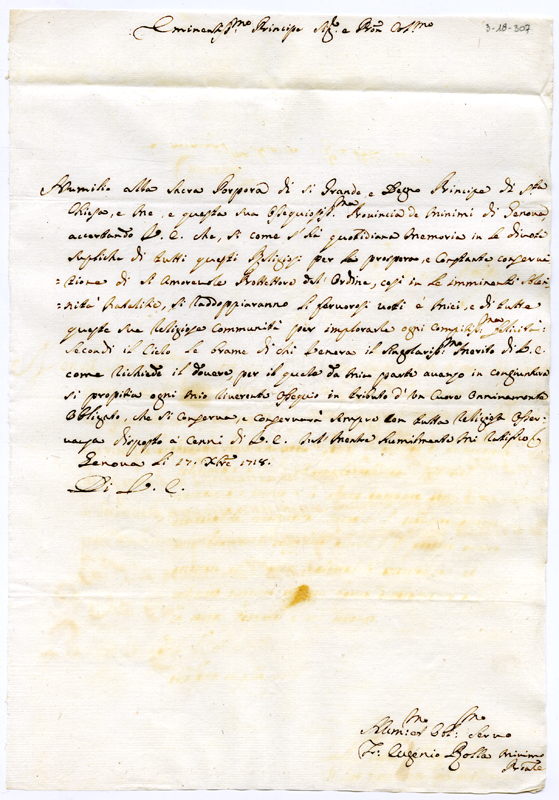 Eminentiss.mo Principe Sig.r e Pron Col.mo
3-18-307
Humilio alla Sacra Porpora di si Grande, e Degno Principe di S.ta
Chiesa, e Me, e questa sua Ossequiosiss.ma Provincia de Minimi di Genova
accertando V. E. che, si come s'hà quotidiana Memoria in le divote
supliche di tutti questi Religiosi per la prospera, e Constante conserva
=tione di si Amorevole Protettore del Ordine, cosi in le imminenti solen
=nità Natalitie, si raddoppiaranno li fervorosi voti é Miei, e di tutte
queste sue Religiose Communità per implorarle ogni Compitis.ma felicità:
Secondi il Cielo le brame di chi Venera il Singularis.mo Merito di V. E.
come Richiede il dovere per il quale da mia parte avanzo in congiuntura
si propitia ogni mio riverente Ossequio in tributo d'Un Cuore Onninamente
Obligato, che si Conserva, e Conserverà sempre con tutta Religiosa Osser-
vanza disposto á Cenni di V. E. nel mentre humilmente mi ratifico
Genova li 17. Xbre 1718.
Di V. E.
Hum.mo et Obl.mo Servo
Fr. Eugenio Rolla Minimo